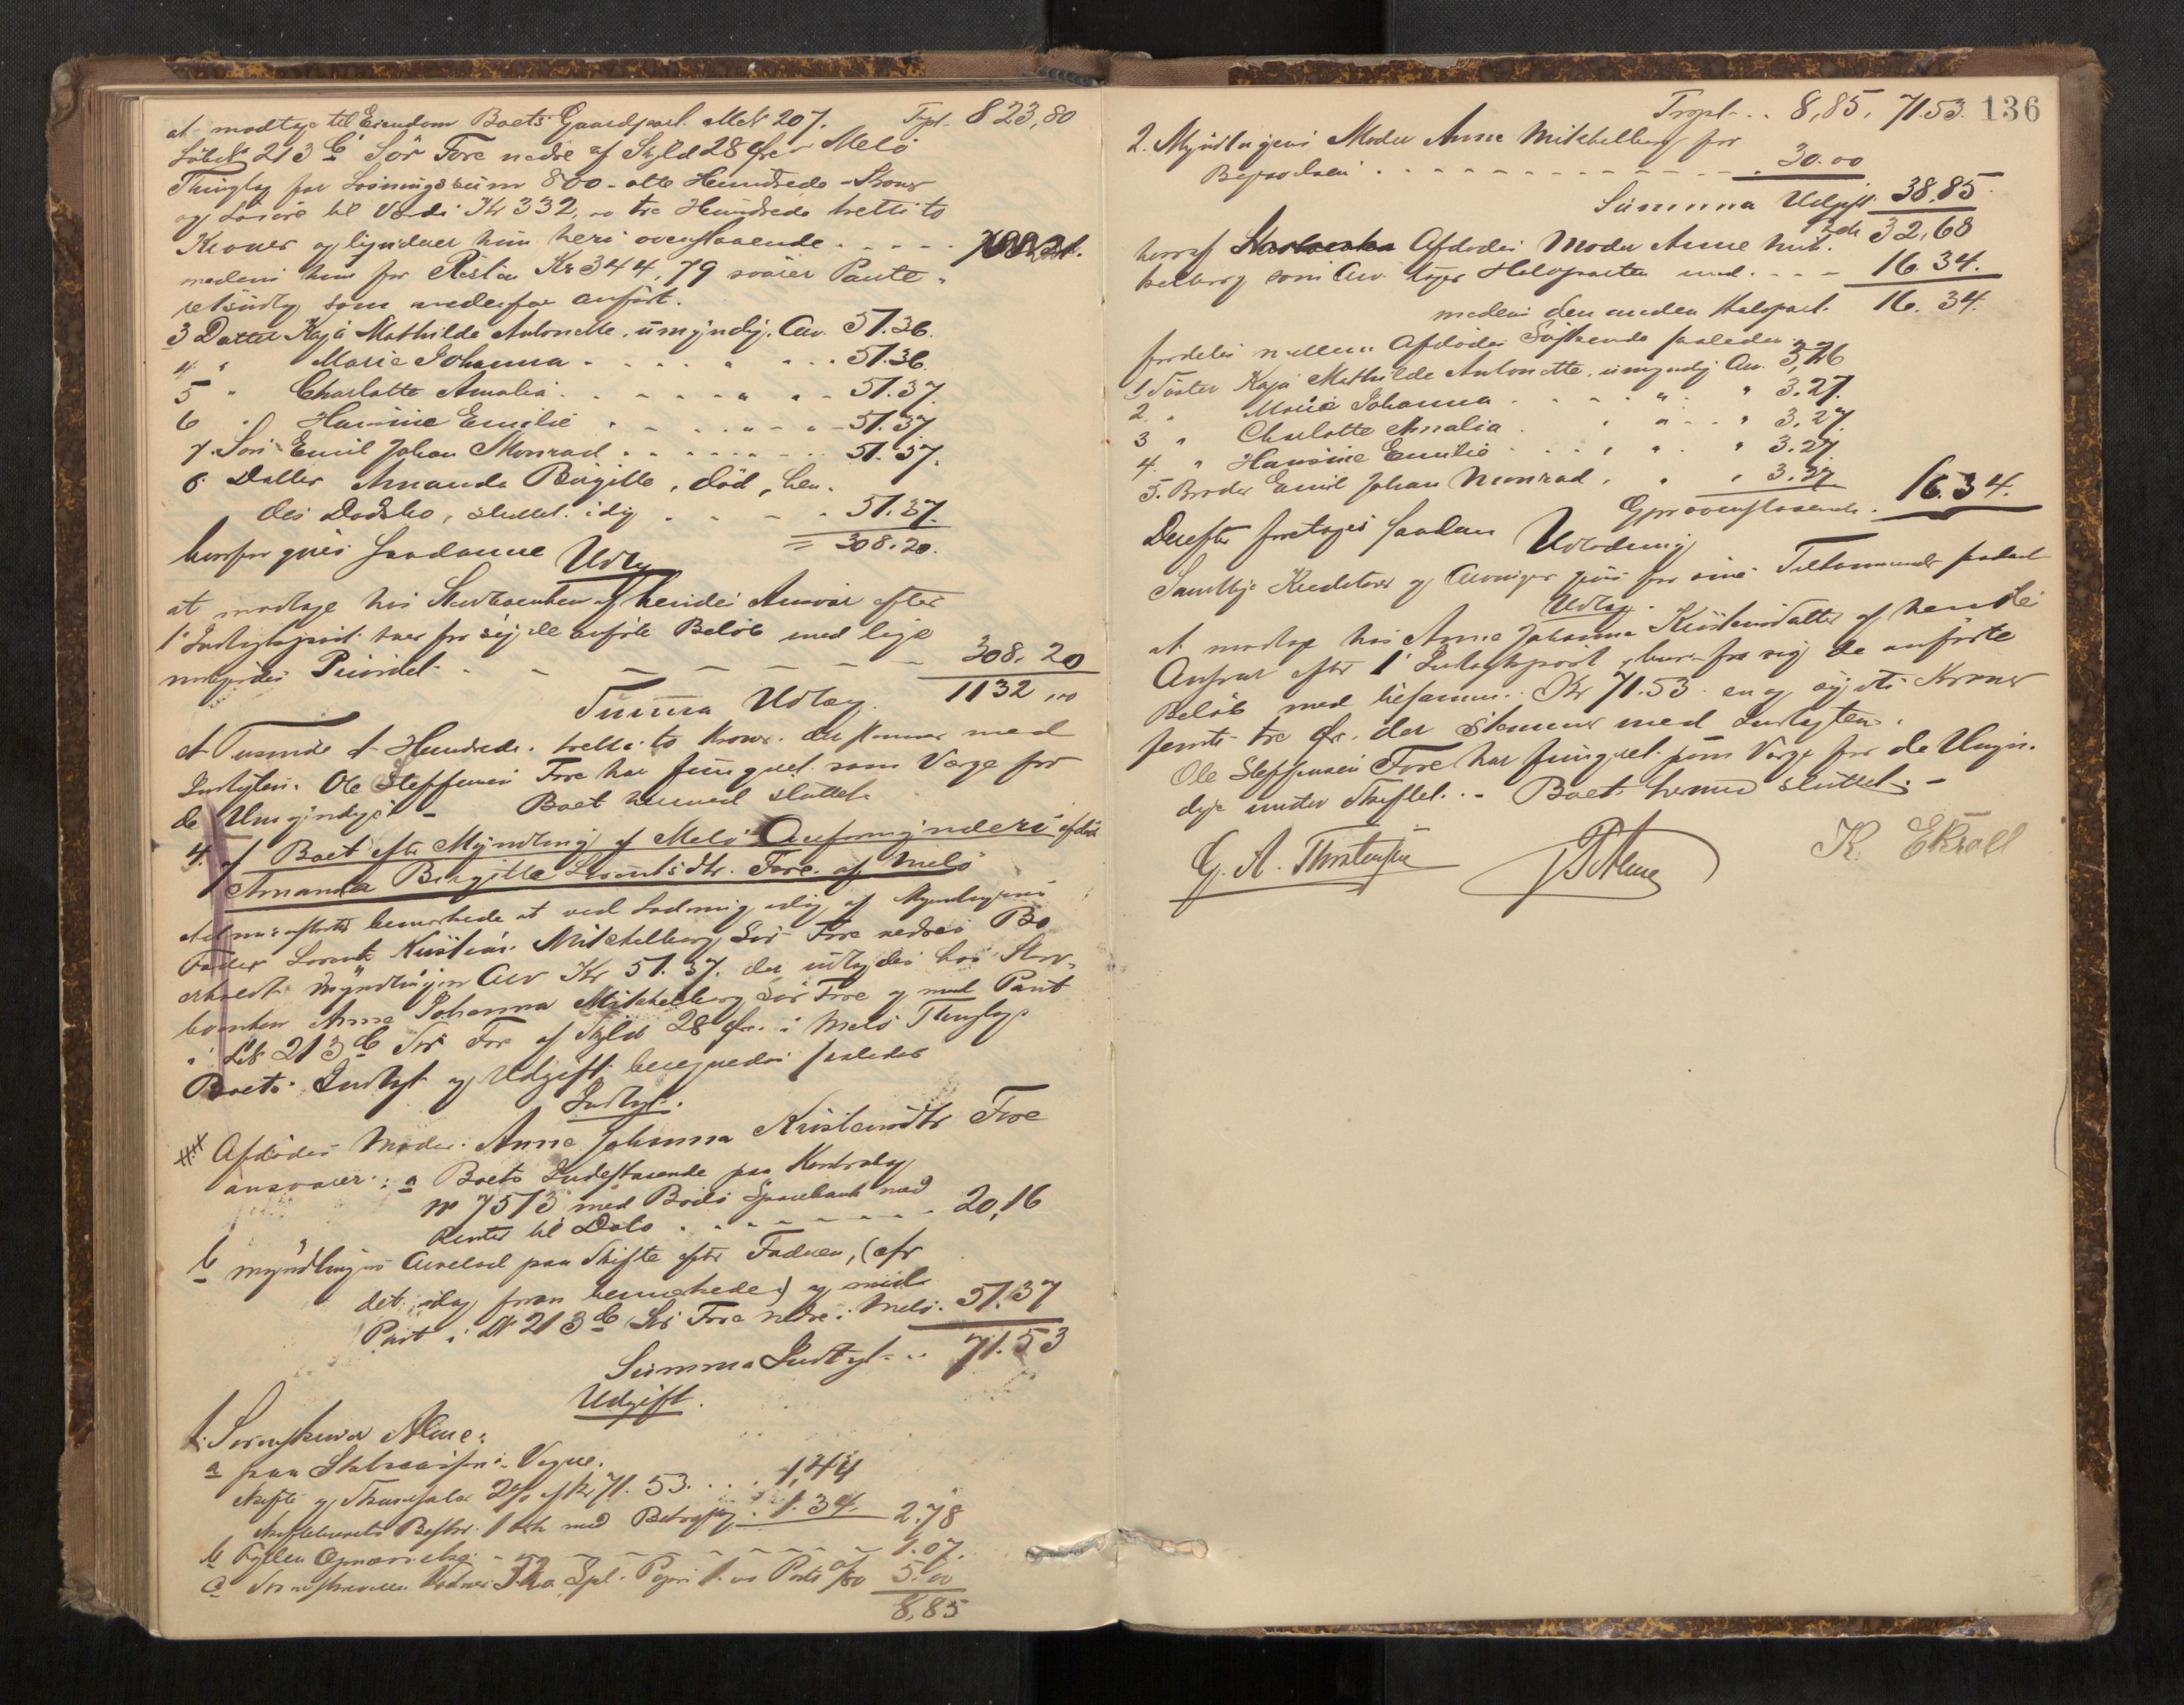 Trpt. 823,80
at modtage til Eiendom Boets Gaardpart. Mat 207.
Løbe No 213 b Sør Fore nedre af Skyld 28 Øre Melø
Thinglag for Løsningssum 800 - otte Hundrede - Kroner
og Løsøre til Værdi Kr 332,00 tre Hundrede tretti to
Kroner og ligndner hun heri ovenstaaende . . . . .
medens hun for Resten Kr 344,79 svarer Pante-
som nedenfor anført.
3 Datter Kaja Mathilde Antonette, umyndig, Arv. 51.36.
4 " Marie Johanna . . . . " . . . 51.36.
5 " Charlotte Amalia . . . . . " . . 51.37.
6 " Hansine Emilie . . . " . . 51.37
7. Søn Emil Johan Monrad . . . . . . . 51.37.
8. Datter Amanda Birgitte, død, hen-
des Dødsbo, sluttet idag . . . . 51.37.
= 308.20.
hvorfor gives saadanne Udlæg
at modtage hos Stervboenken af hendes Ansvar efter
1 Indtægtspost hver for sig de anførte Beløb med lige
indbyrdes Prioritet . . . . . . 308.20
Summa Udlæg. 1132,00
et Tusinde et Hundrede tretti to Kroner der stemmer med
Indtægten. Ole Steffensen Fore har fungeret som Værge for
de Umyndige. - Boet hermed sluttet.
4. af Boet efter Myndling af Melø Overformynderi afdøde
Amanda Birgitte Lorentsdtr. Fore af Melø
bemærkede at ved Lodning idag af Myndlingens
Fader Lorents Kristian Mikkelborg, Sør Fore nedres Bo
erholdt Myndlingen Arv Kr 51.37. der udlagdes hos Sterv-
boenken Anne Johanna Mikkelborg Sør Fore og med Pant
i Løb. 213 b Sør Fore af Skyld 28 Øre i Melø Thinglag.
Boets Indtægt og Udgift beregnedes saaledes
Indtægt.
Afdødes Moder Anne Johanna Kristensdtr Fore
ansvarer: a Boets Indestaaende paa Kontrabog
No 7513 med Bodø Sparebank med
Renter til Dato . . . . . . . . 20,16
b Myndlingens Arvelod paa Skifte efter Faderen, (efr
det idag foran bemærkede) og med
Pant i No 213 b Sør Fore nedre i Melø. 51.37
Summa Indtægt . . 71.53
Udgift.
1. Sorenskriver Alme:
a paa Statscassens Vegne.
Skifte og Skuesalær 2% af Kr 71.53. . . . 1,44
1.34. 2.78
b . . . . . . 1.07.
5.00
8,85
Trspt. . . 8,85. 71.53. 136
2. Myndlingens Moder Anne Mikkelborg for
Begravelsen . . . . . . . . . . . 30.00
Summa Udgift 38,85.
32,68
hvoraf Afdødes Moder Anne Mik-
kelborg som Arv tager Halvparten med. . . . 16.34.
medens den anden Halvpart. 16.34.
fordeles mellem Afdødes Søskende saaledes:
1 Søster Kaja Mathilde Antonette, umyndig Arv. 3,26
2 " Marie Johanna . . . . " . " 3.27.
3 " Charlotte Amalia . . " . . " 3.27.
4. " Hansine Emilie . . . " . " 3.27.
5. Broder Emil Johan Monrad, " " 3.27
Gjør ovenstaaende. 16.34.
Derefter foretages saadan Udlodning
Samtlige Kreditorer og Arvinger gives for sine Tilkommende saadant
Udlæg.
at modtage hos Anne Johanna Kristensdatter af hendes
Ansvar efter 1 Indtægtspost, hver for sig de anførte
Beløb med tilsammen Kr 71.53. en og sytti Kroner
femti tre Øre, der stemmer med Indtægten.
Ole Steffensen Fore har fungeret som Værge for de Umyn-
dige under Skiftet. - Boet hermed sluttet. -
K. Ekroll